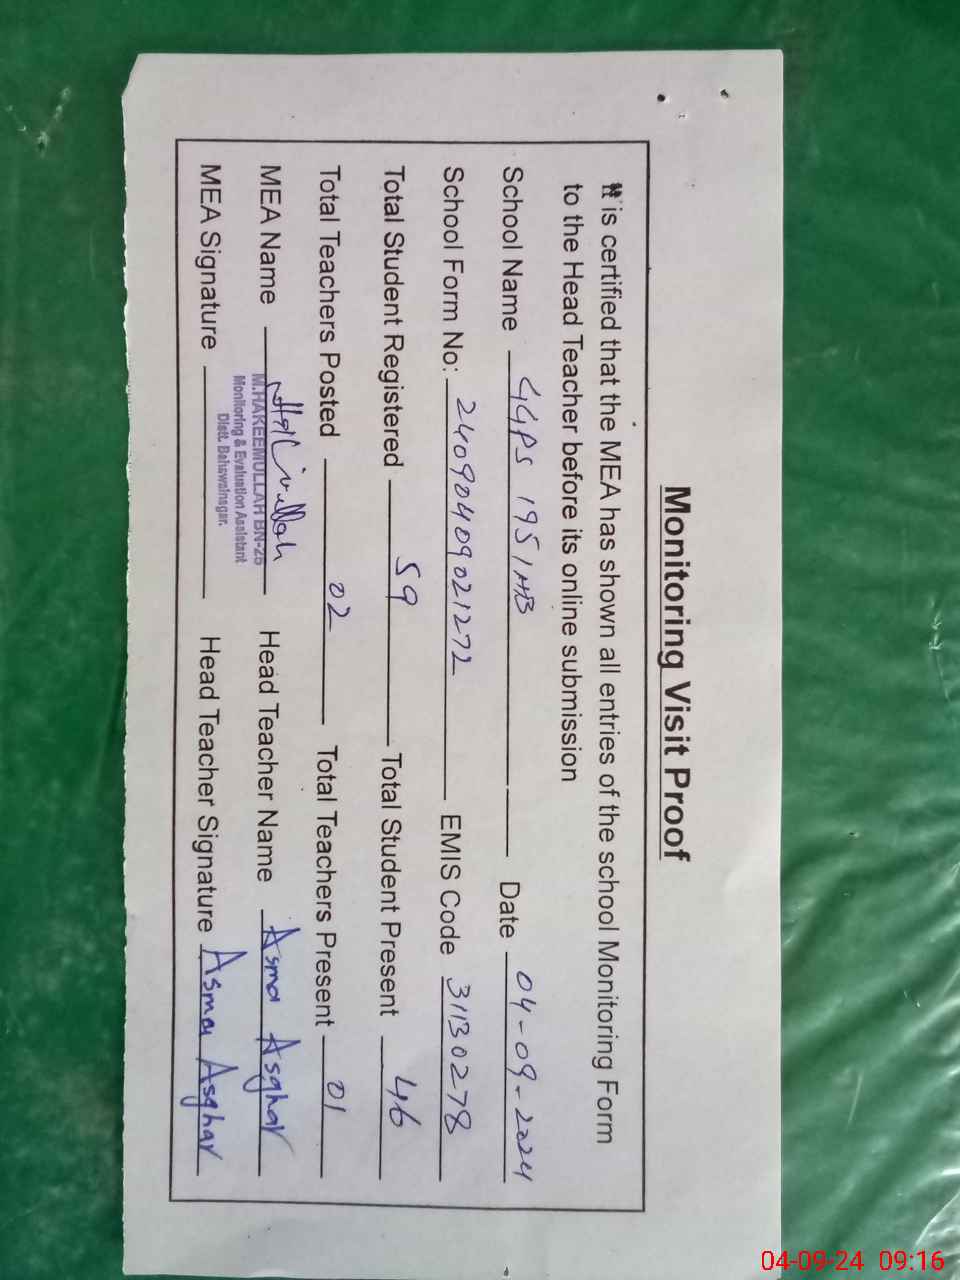 Monitoring Visit Proof
It is certified that the MEA has shown all entries of the school Monitoring Form
to the Head Teacher before its online submission
School Name GGPS 195/HB Date 04-09-2024
School Form No: 24090409021272 EMIS Code 31130278
Total Student Registered 59 Total Student Present 46
Total Teachers Posted 02 Total Teachers Present 01
MEA Name Head Teacher Name Asma Asghar
M.HAKEEMULLAH BN-26
Monitoring & Evaluation Assistant
Distt. Bahawalnagar.
MEA Signature Head Teacher Signature Asma Asghar
04-09-24 09:16